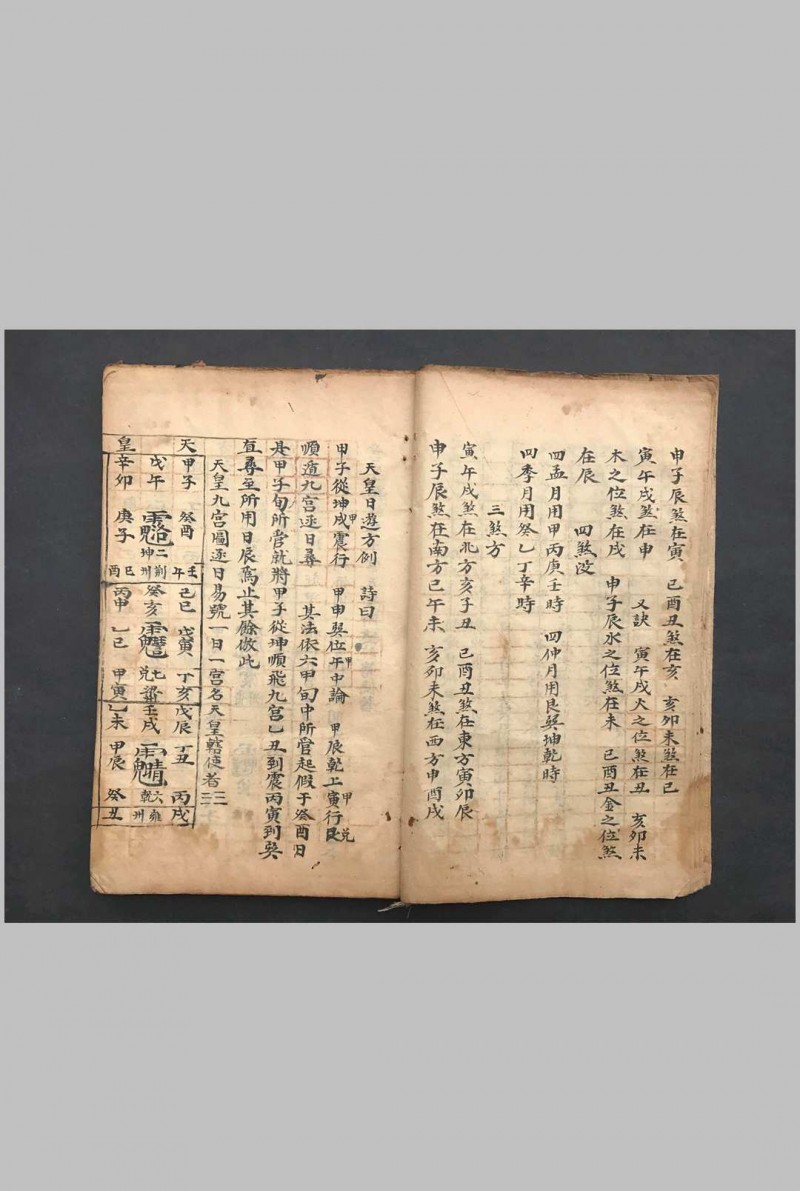 申子辰煞在寅　巳酉丑煞在亥　亥卯未煞在巳
寅午戌煞在申　又訣　寅午戌火之位煞在丑　亥卯未
木之位煞在戌　申子辰水之位煞在未　巳酉丑金之位煞
在辰　四煞沒
四孟月用甲丙庚壬時　四仲月用艮巽坤乾時
四季月用癸乙丁辛時
三煞方
寅午戌煞在北方亥子丑　巳酉丑煞在東方寅卯辰
申子辰煞在南方巳午未　亥卯未煞在西方申酉戌
天皇日遊方例　詩曰
甲子從坤戌甲震行　甲申巽位午甲中論　甲辰乾上寅甲行艮兌
順遁九宮逐日尋　其法依六甲旬中所管起假于癸酉日
是甲子旬所管就將甲子從坤順飛九宮乙丑到震丙寅到巽
直尋至所用日辰為止其餘倣此
天皇九宮圖逐日易號一日一宮名天皇轄使者
天　甲子　癸酉　壬午　己巳　戊寅　丁亥　戊辰　丁丑　丙戌
戊午　二坤荊州　癸亥　七兌梁　壬戌　六乾雍州
皇　辛卯　庚子　己酉　丙申　乙巳　甲寅　乙未　甲辰　癸丑